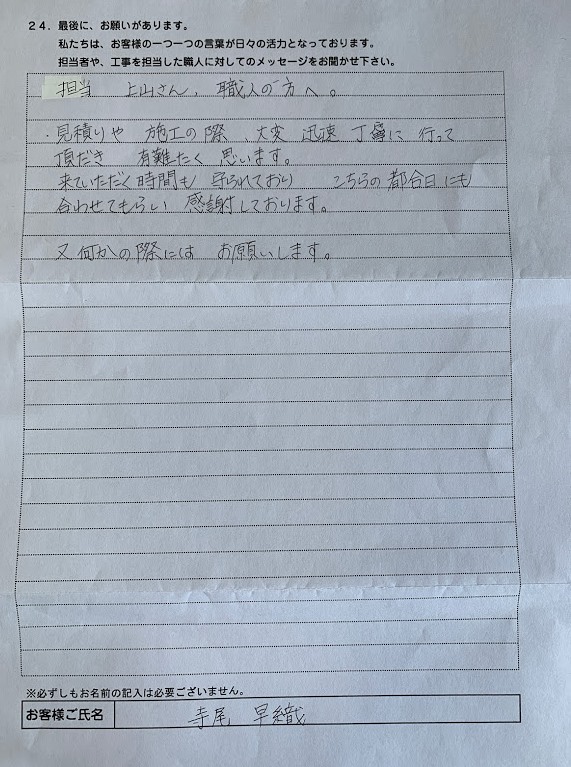 24．最後に、お願いがあります。
私たちは、お客様の一つ一つの言葉が日々の活力となっております。
担当者や、工事を担当した職人に対してのメッセージをお聞かせ下さい。
担当 上山さん、職人の方へ。
・見積りや 施工の際、大変 迅速 丁寧に 行って
頂だき 有難たく 思います。
来ていただく時間も 守られており こちらの都合日にも
合わせてもらい 感謝しております。
又何かの際には お願いします。
※必ずしもお名前の記入は必要ございません。
お客様ご氏名 寺尾 早織